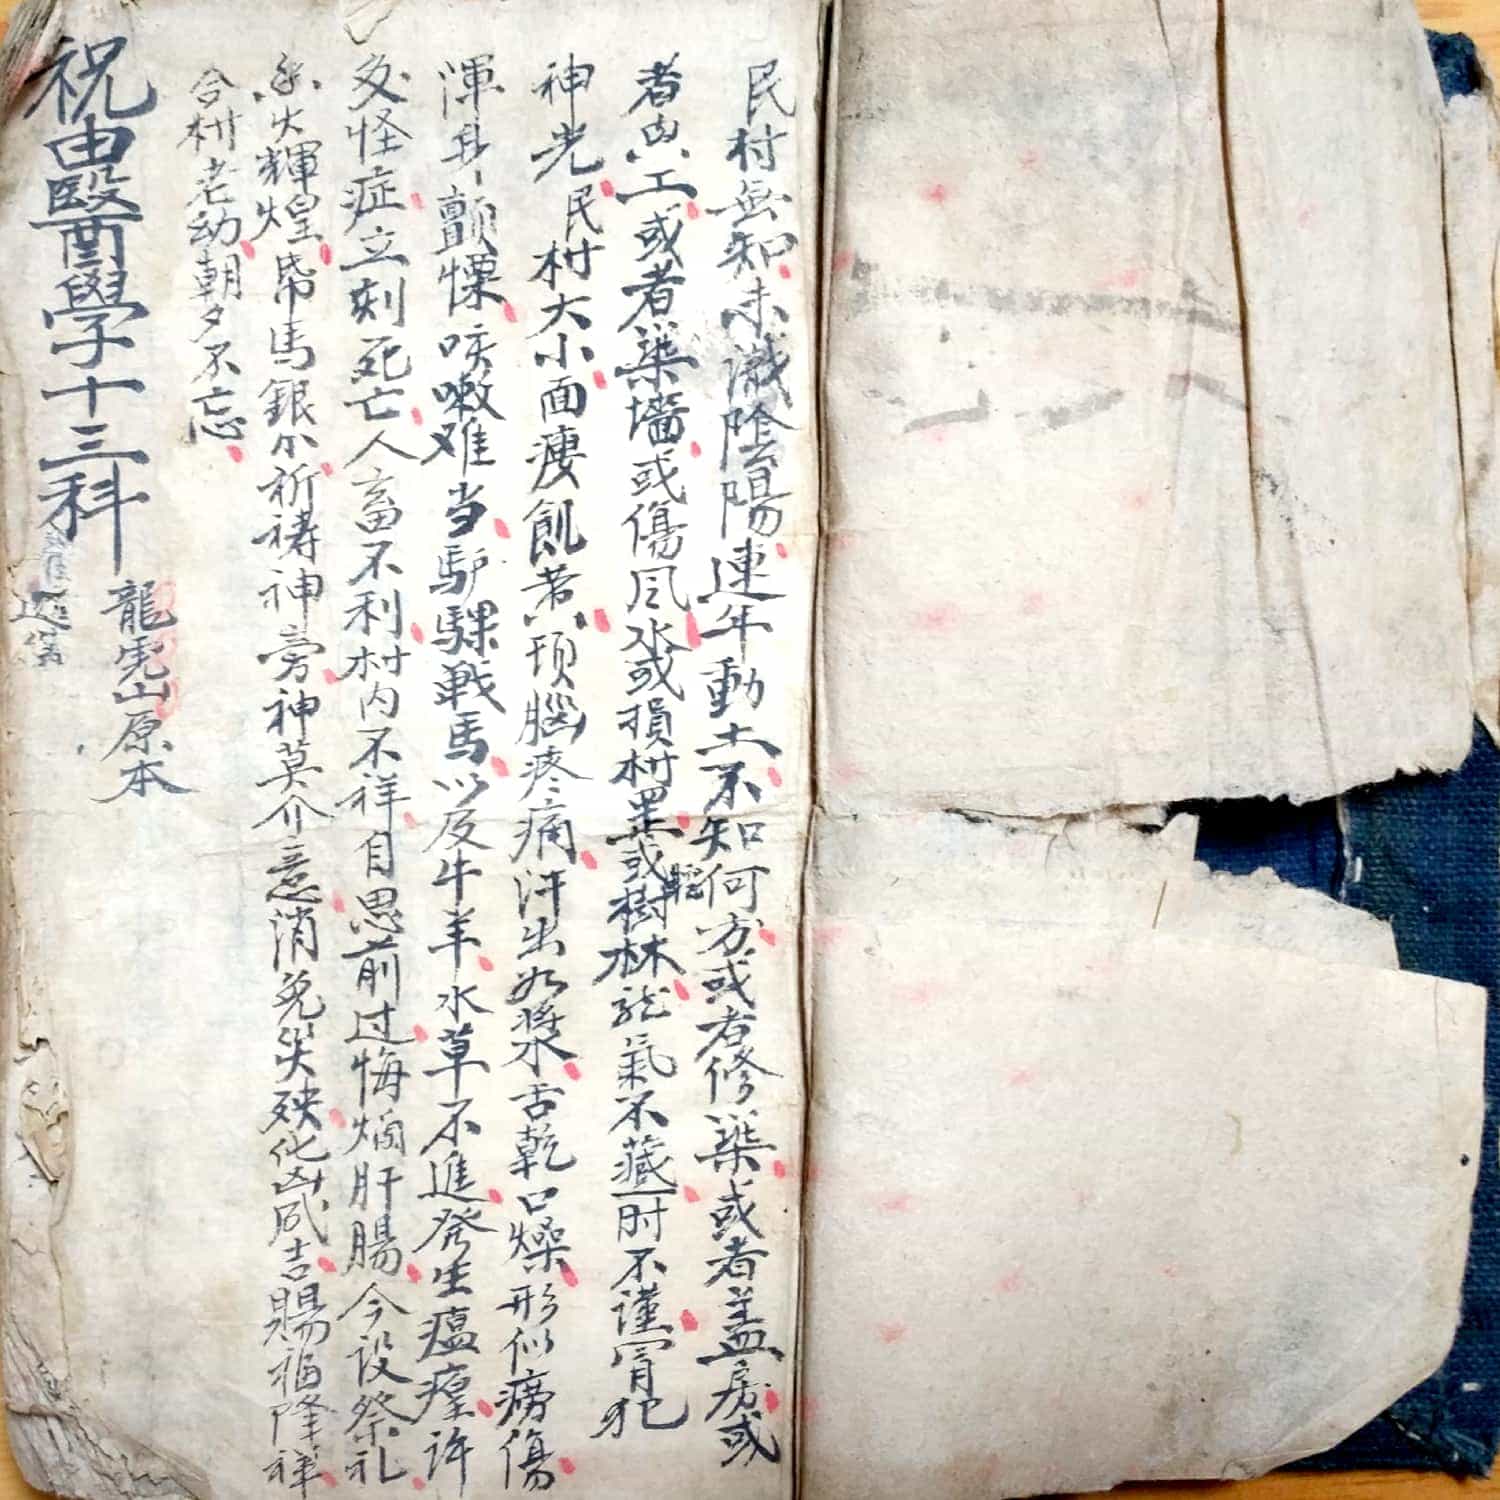 民村無知未識陰陽連年動土不知何方或者修築或者盖房或
者兴工或者築墻或傷风水或損村里或騐樹林龙氣不藏一时不謹冐犯
神光民村大小面瘦飢羔頭腦疼痛汗出如漿水舌乾口燥形似癆傷
渾身顫慄咳嗽难当馿騾戰馬以及牛羊水草不進発生瘟瘴许
多怪症立刻死亡人畜不利村内不祥自思前过悔烟肝腸今设祭礼
灯火輝煌帋馬銀分祈祷神旁神莫介意消免災殃化凶成吉賜福降祥
合村老幼朝夕不忘
祝由醫學十三科
龍虎山原本